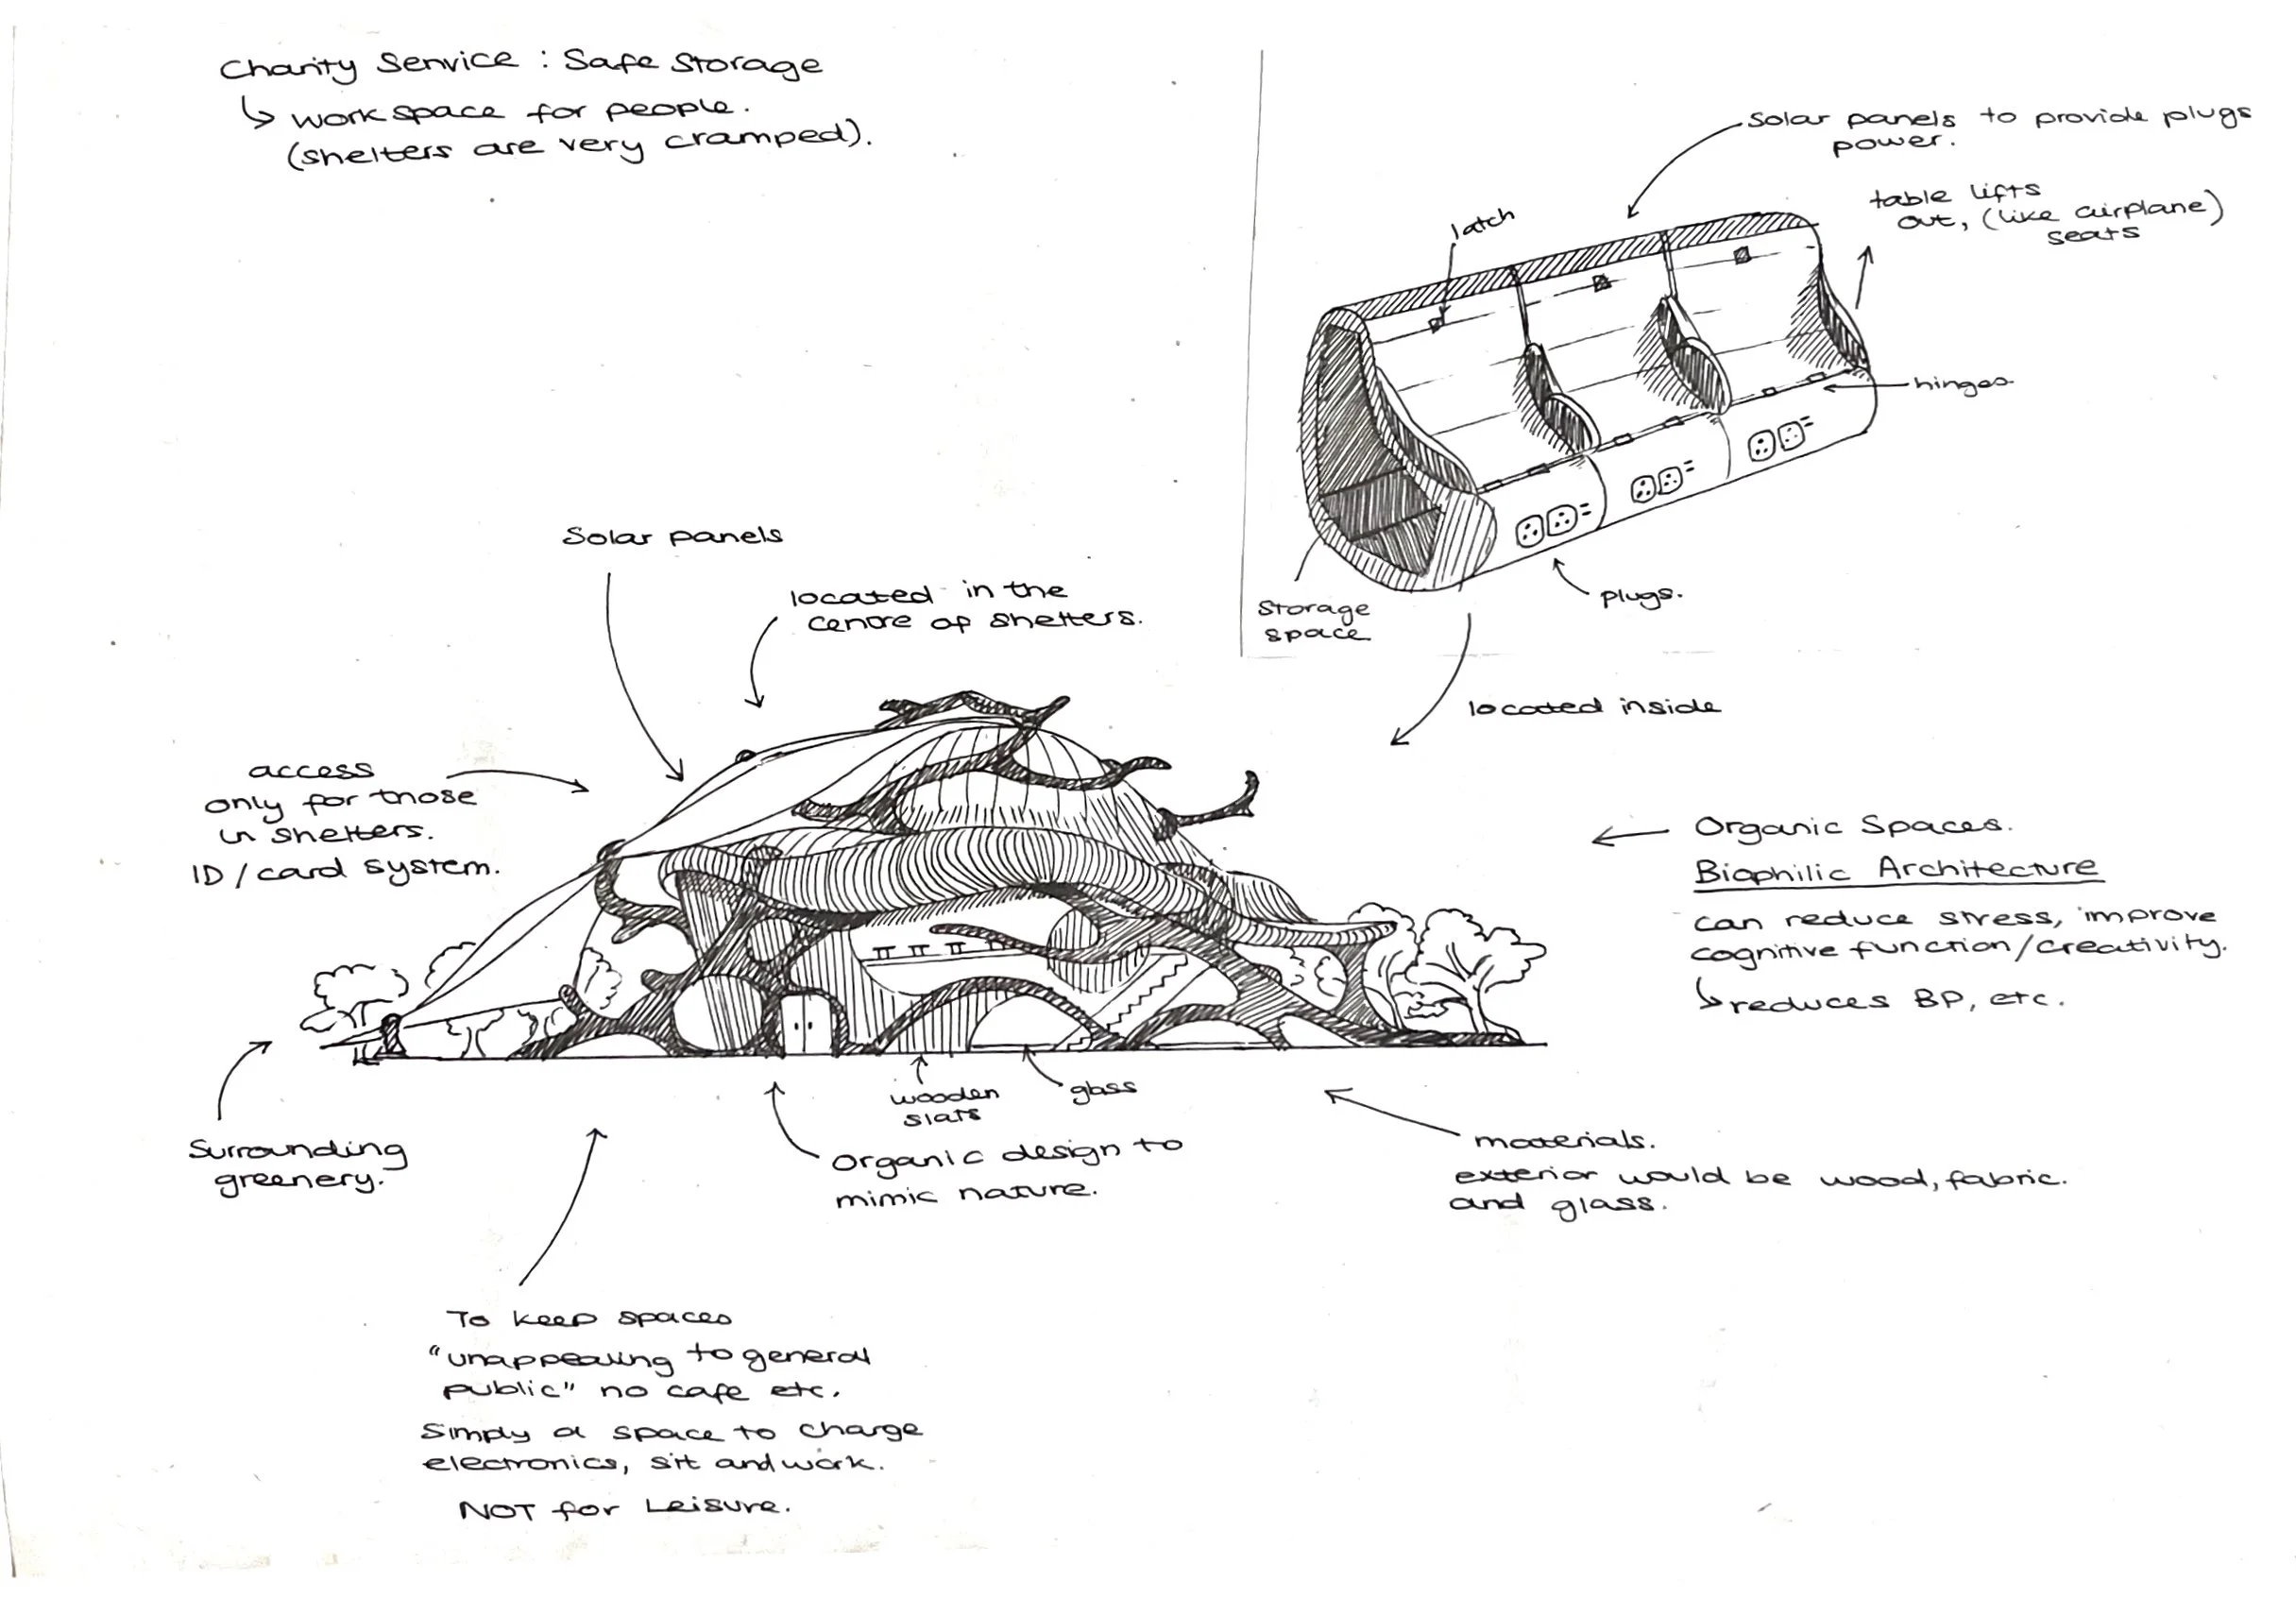 Charity Service : Safe Storage
↳ work space for people.
(shelters are very cramped).
Solar panels to provide plugs
power.
table lifts
out, (like airplane)
seats
latch
hinges
plugs.
Storage
space
located inside
Solar panels
located in the
centre of shelters.
access
only for those
in shelters.
ID / card system.
← Organic Spaces.
Biophilic Architecture
can reduce stress, improve
cognitive function/creativity.
↳ reduces BP, etc.
Surrounding
greenery.
wooden
slats
glass
Organic design to
mimic nature.
materials.
exterior would be wood, fabric.
and glass.
To keep spaces
"unappealing to general
public" no cafe etc.
Simply a space to charge
electronics, sit and work.
NOT for Leisure.